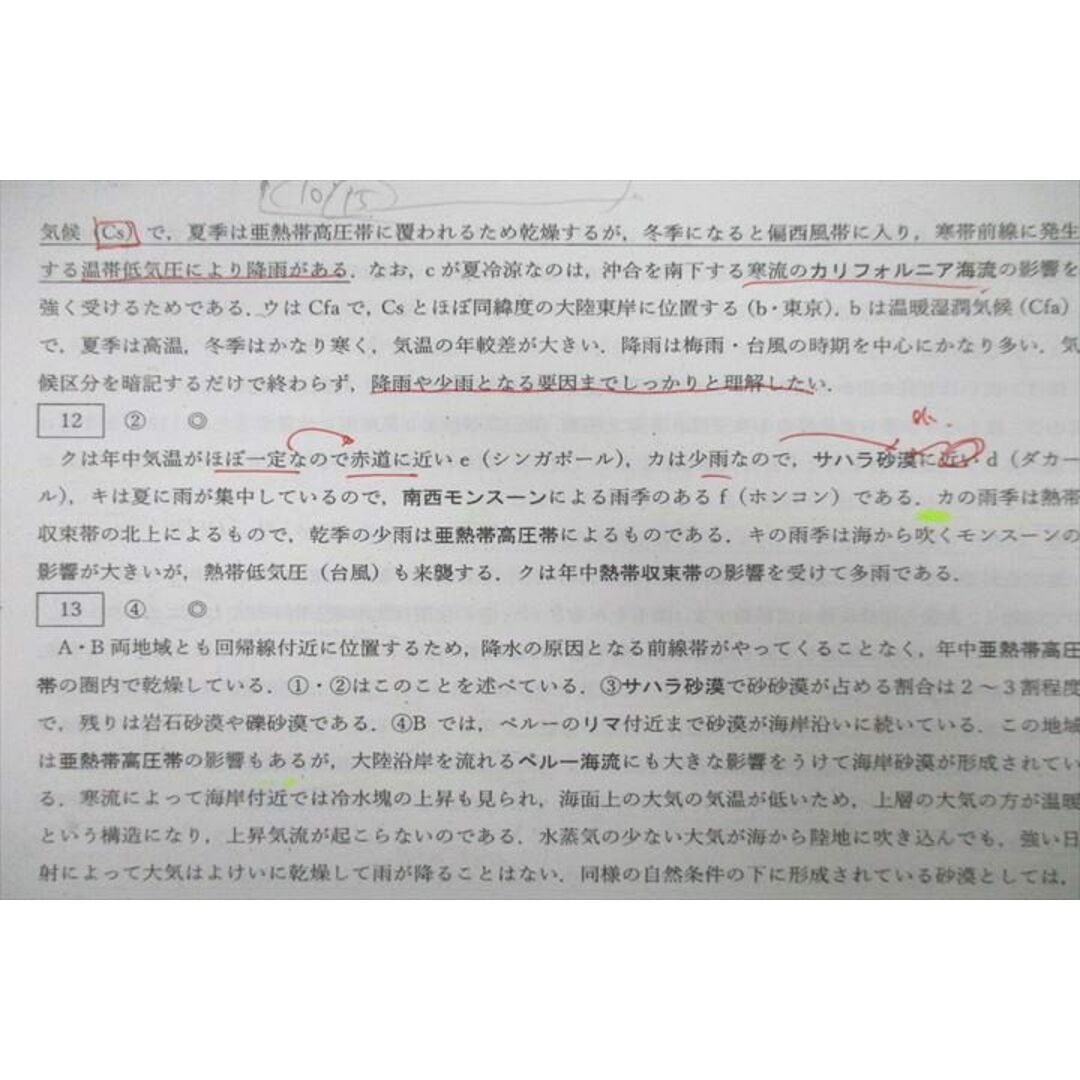 (10/15)
気候（Cs）で，夏季は亜熱帯高圧帯に覆われるため乾燥するが，冬季になると偏西風帯に入り，寒帯前線に発生
する温帯低気圧により降雨がある．なお，cが夏冷涼なのは，沖合を南下する寒流のカリフォルニア海流の影響を
強く受けるためである．ウはCfaで，Csとほぼ同緯度の大陸東岸に位置する（b・東京）．bは温暖湿潤気候（Cfa）
で，夏季は高温，冬季はかなり寒く，気温の年較差が大きい．降雨は梅雨・台風の時期を中心にかなり多い．気
候区分を暗記するだけで終わらず，降雨や少雨となる要因までしっかりと理解したい．
12 ② ◎
クは年中気温がほぼ一定なので赤道に近いe（シンガポール），カは少雨なので，サハラ砂漠に近いd（ダカー
ル），キは夏に雨が集中しているので，南西モンスーンによる雨季のあるf（ホンコン）である．カの雨季は熱帯
収束帯の北上によるもので，乾季の少雨は亜熱帯高圧帯によるものである．キの雨季は海から吹くモンスーンの
影響が大きいが，熱帯低気圧（台風）も来襲する．クは年中熱帯収束帯の影響を受けて多雨である．
13 ④ ◎
A・B両地域とも回帰線付近に位置するため，降水の原因となる前線帯がやってくることなく，年中亜熱帯高圧
帯の圏内で乾燥している．①・②はこのことを述べている．③サハラ砂漠で砂砂漠が占める割合は２～３割程度
で，残りは岩石砂漠や礫砂漠である．④Bでは，ペルーのリマ付近まで砂漠が海岸沿いに続いている．この地域
は亜熱帯高圧帯の影響もあるが，大陸沿岸を流れるペルー海流にも大きな影響をうけて海岸砂漠が形成されてい
る．寒流によって海岸付近では冷水塊の上昇も見られ，海面上の大気の気温が低いため，上層の大気の方が温暖
という構造になり，上昇気流が起こらないのである．水蒸気の少ない大気が海から陸地に吹き込んでも，強い日
射によって大気はよけいに乾燥して雨が降ることはない．同様の自然条件の下に形成されている砂漠としては，